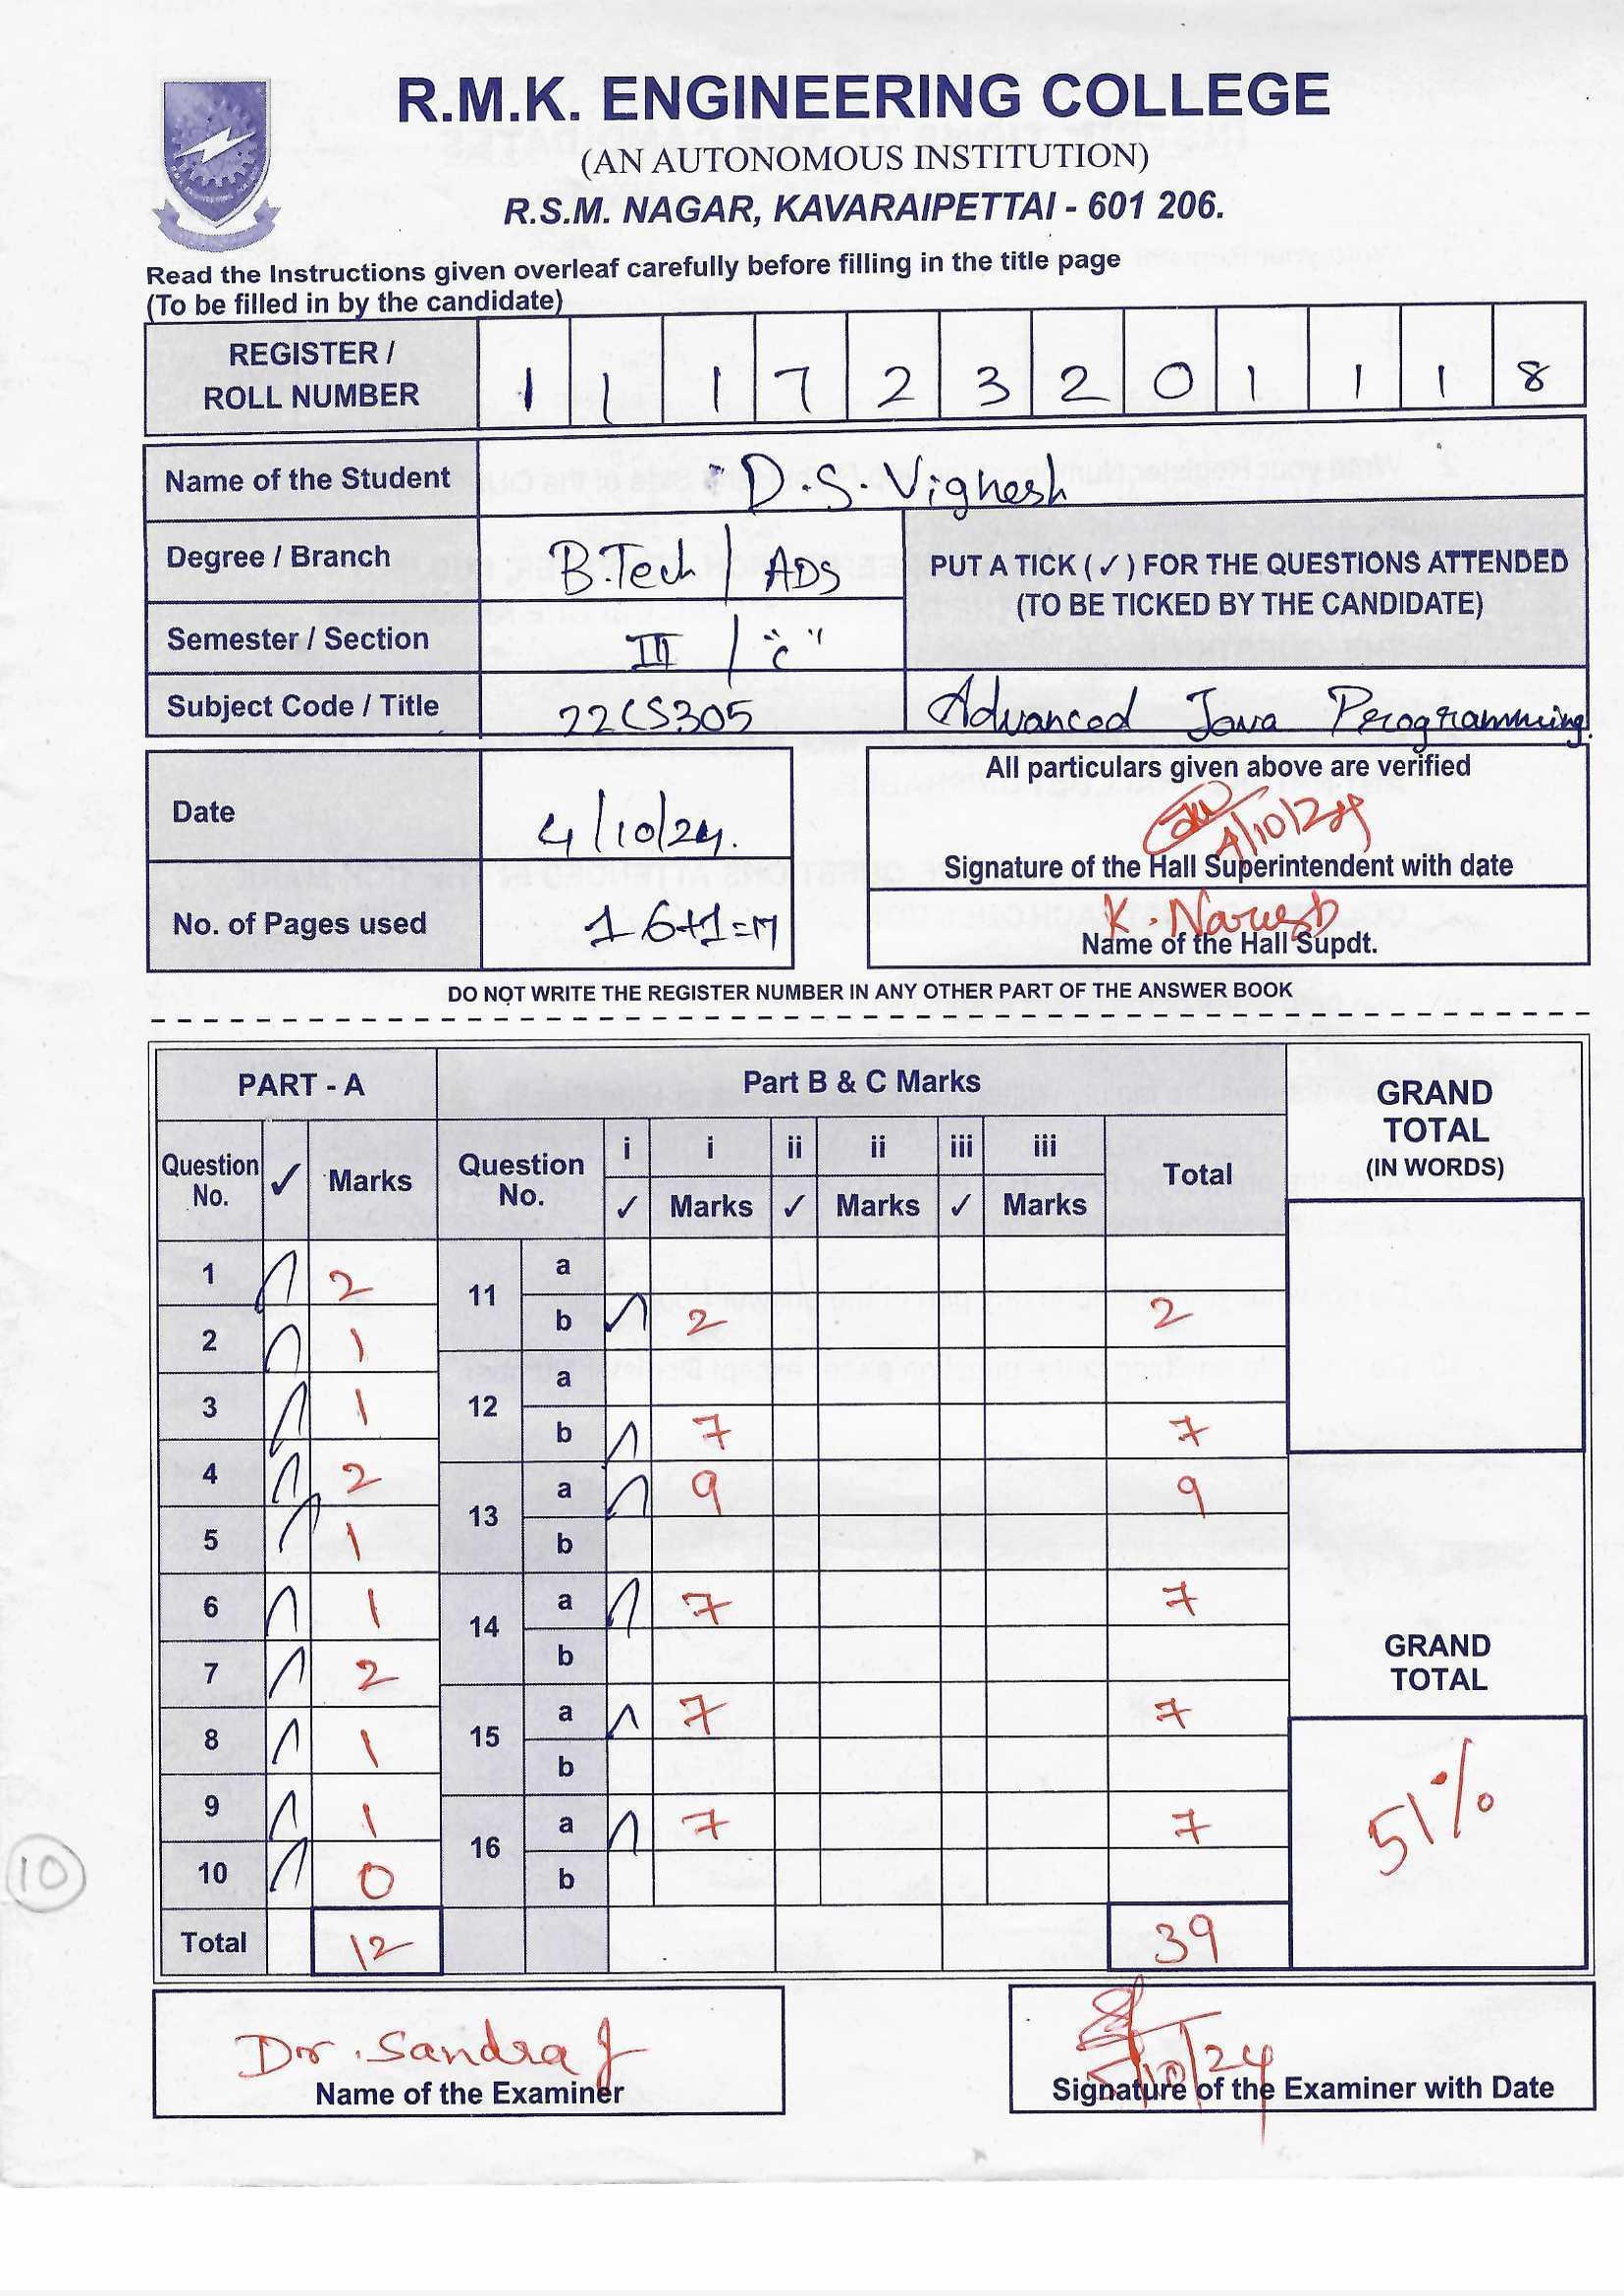 R.M.K. ENGINEERING COLLEGE
(AN AUTONOMOUS INSTITUTION)
R.S.M. NAGAR, KAVARAIPETTAI - 601 206.
Read the Instructions given overleaf carefully before filling in the title page
(To be filled in by the candidate)
REGISTER / ROLL NUMBER 1 1 1 7 2 3 2 0 1 1 1 8
Name of the Student D.S. Vighesh
Degree / Branch B.Tech / ADS
PUT A TICK ( ✓ ) FOR THE QUESTIONS ATTENDED
(TO BE TICKED BY THE CANDIDATE)
Semester / Section III / "C"
Subject Code / Title 22CS305 Advanced Java Programming
All particulars given above are verified
Date 4/10/24.
4/10/24
Signature of the Hall Superintendent with date
No. of Pages used 16+1=17
K. Naresh
Name of the Hall Supdt.
DO NOT WRITE THE REGISTER NUMBER IN ANY OTHER PART OF THE ANSWER BOOK
PART - A Part B & C Marks GRAND TOTAL (IN WORDS)
Question No. ✓ Marks Question No. i i ii ii iii iii Total
✓ Marks ✓ Marks ✓ Marks
1 ✓ 2 11 a
b ✓ 2 2
2 ✓ 1
3 ✓ 1 12 a
b ✓ 7 7
4 ✓ 2 13 a ✓ 9 9
5 ✓ 1 b
6 ✓ 1 14 a ✓ 7 7
7 ✓ 2 b
GRAND TOTAL
8 ✓ 1 15 a ✓ 7 7
b
9 ✓ 1 16 a ✓ 7 7
51%
10 ✓ 0 b
10
Total 12 39
Dr. Sandra J
Name of the Examiner
/10/24
Signature of the Examiner with Date